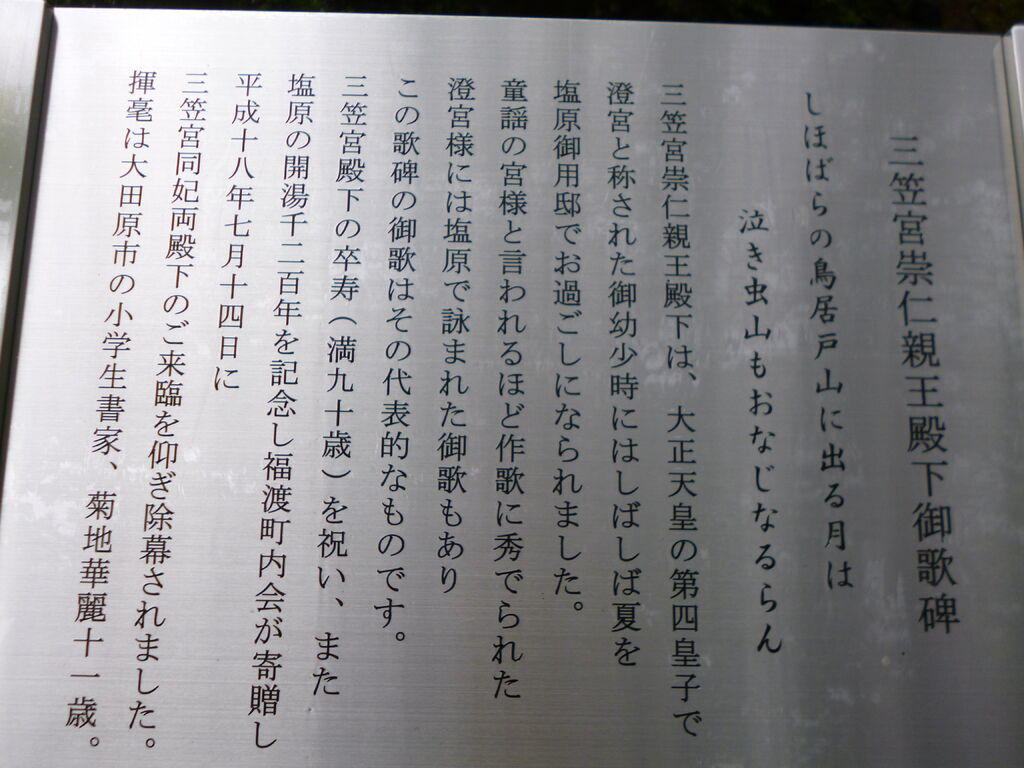 三笠宮崇仁親王殿下御歌碑
しほばらの鳥居戸山に出る月は
泣き虫山もおなじなるらん
三笠宮崇仁親王殿下は、大正天皇の第四皇子で
澄宮と称された御幼少時にはしばしば夏を
塩原御用邸でお過ごしになられました。
童謡の宮様と言われるほど作歌に秀でられた
澄宮様には塩原で詠まれた御歌もあり
この歌碑の御歌はその代表的なものです。
三笠宮殿下の卒寿（満九十歳）を祝い、また
塩原の開湯千二百年を記念し福渡町内会が寄贈し
平成十八年七月十四日に
三笠宮同妃両殿下のご来臨を仰ぎ除幕されました。
揮毫は大田原市の小学生書家、菊地華麗十一歳。